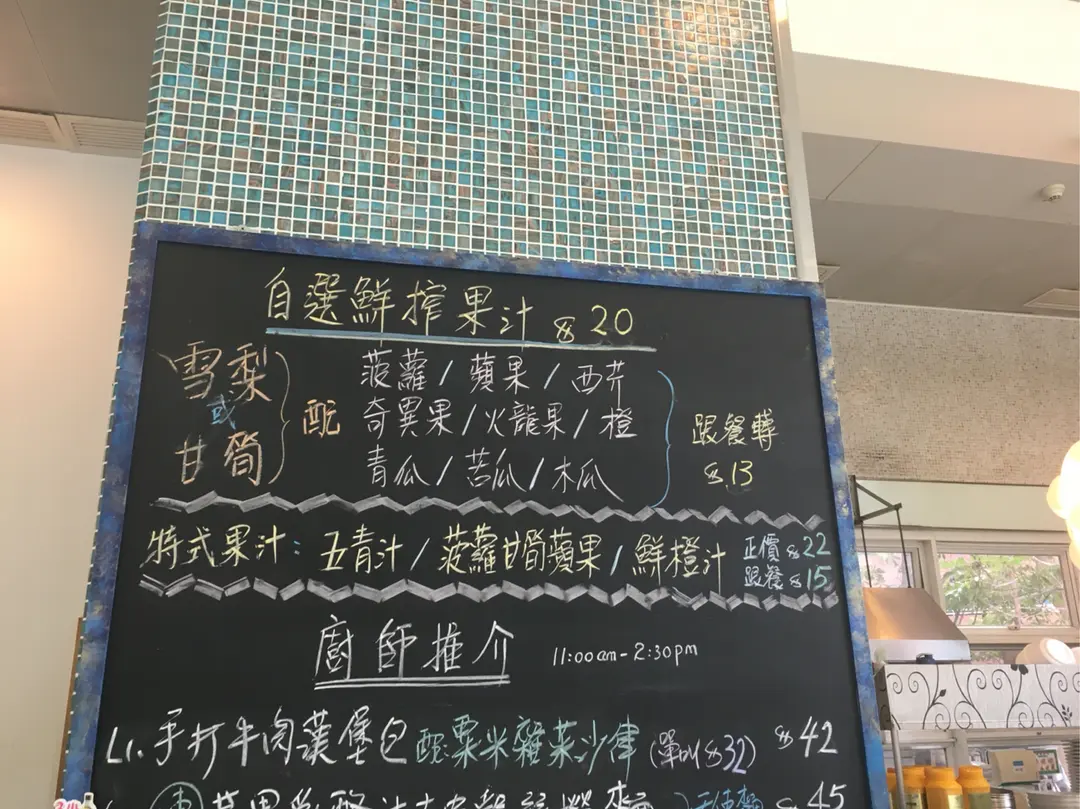 自選鮮搾果汁 $20
雪梨
或
甘筍
配
菠蘿/蘋果/西芹
奇異果/火龍果/橙
青瓜/苦瓜/木瓜
跟餐轉
$13
特式果汁: 五青汁/菠蘿甘筍蘋果/鮮橙汁
正價 $22
跟餐 $15
廚師推介 11:00am-2:30pm
L1. 手打牛肉漢堡包配粟米雜菜沙律(單叫$32) $42
$45